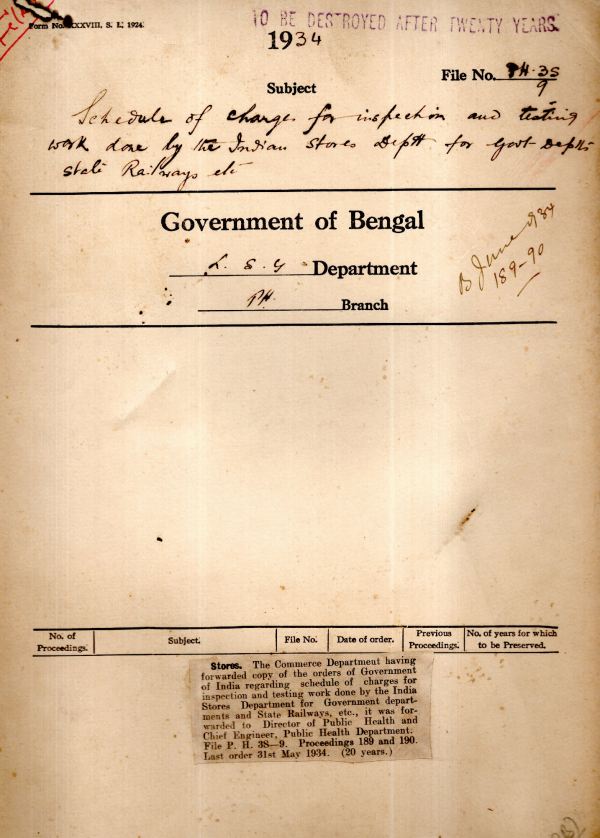 Form No. XXXVIII, S. I., 1924.
TO BE DESTROYED AFTER TWENTY YEARS.
1934
File No. PH-3S/9
Subject
Schedule of charges for inspection and testing
work done by the Indian Stores Deptt for Govt Deptts
state Railways etc
Government of Bengal
L. S. G Department
PH. Branch
B June 1934
189-90
No. of Proceedings.
Subject.
File No.
Date of order.
Previous Proceedings.
No. of years for which to be Preserved.
Stores. The Commerce Department having
forwarded copy of the orders of Government
of India regarding schedule of charges for
inspection and testing work done by the India
Stores Department for Government depart-
ments and State Railways, etc., it was for-
warded to Director of Public Health and
Chief Engineer, Public Health Department.
File P. H. 3S—9. Proceedings 189 and 190.
Last order 31st May 1934. (20 years.)